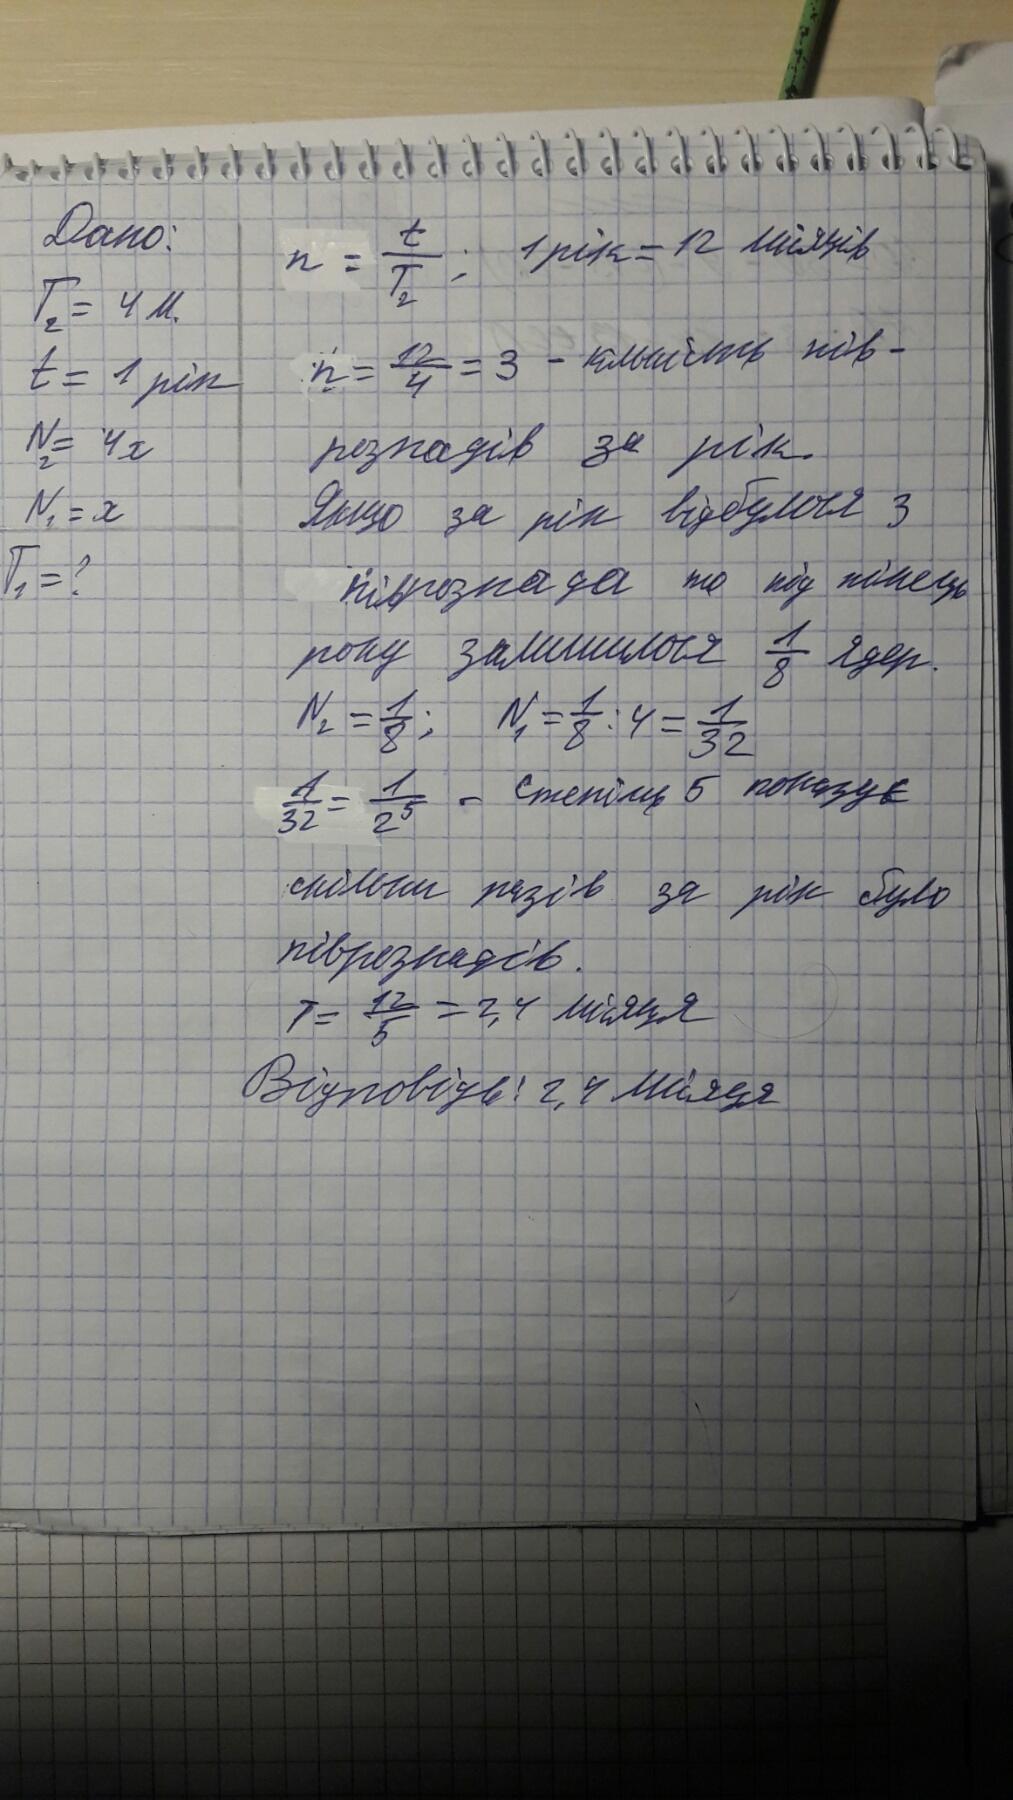 Дано:
T₂ = 4 м.
t = 1 рік
N₂ = 4x
N₁ = x
T₁ = ?
n = t/T₂; 1 рік = 12 місяців
n = 12/4 = 3 - кількість пів-
розпадів за рік.
Якщо за рік відбулося 3
піврозпада то під кінець
року залишилося 1/8 ядер.
N₂ = 1/8; N₁ = 1/8 : 4 = 1/32
1/32 = 1/2⁵ - степінь 5 показує
скільки разів за рік було
піврозпадів.
T = 12/5 = 2,4 місяця
Відповідь: 2,4 місяця